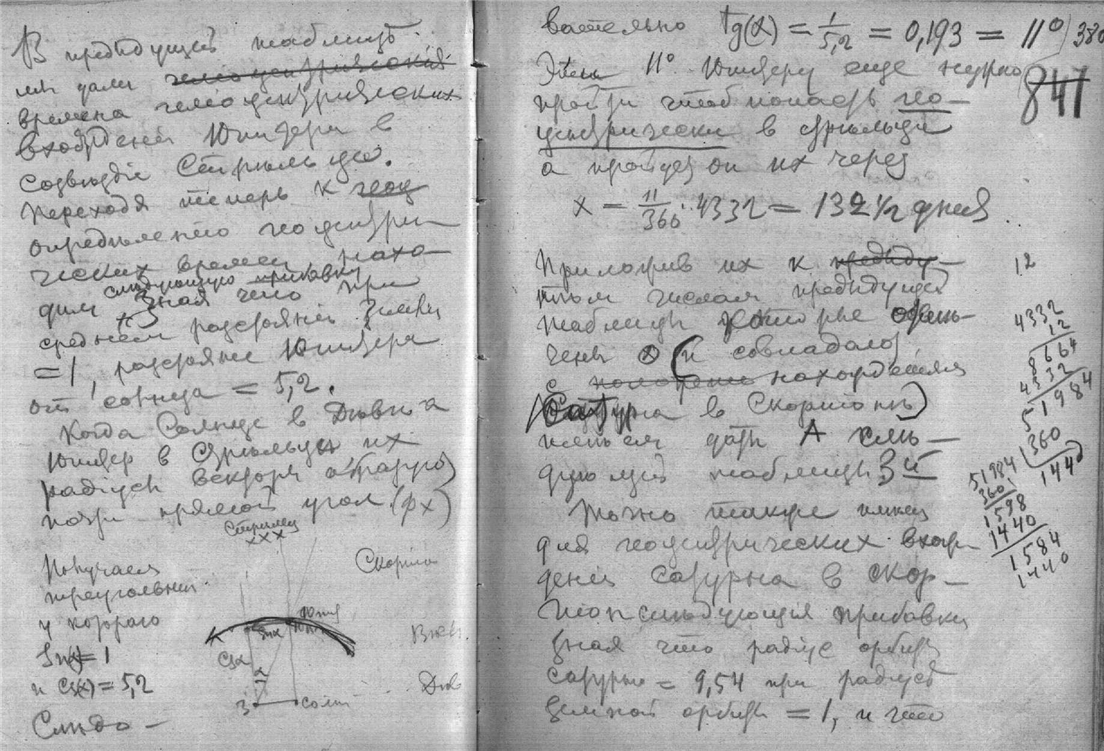 В предыдущей таблицѣ
мы дали
времена гелиоцентрических
вхождений Юпитера в
созвѣздие Стрѣльца.
Переходя теперь к геоц
определению геоцентри-
ческих времен, нахо-
дим следующую прибавку
Зная что при
среднем разстоянии Земли
= 1, разстояние Юпитера
от солнца = 5,2.
Когда Солнце в Дѣвѣ а
Юпитер в Стрѣльце их
радиусы векторы образуют
почти прямой угол (φx)
Стрѣлец
XXX
Получаем
треугольник
у котораго
Sn(x) = 1
и cs(x) = 5,2
Слѣдо-
Скорпион
Юпит
Snx
Csx
Вѣсы
Дѣв
З
солн
вательно tg(x) = 1/5,2 = 0,193 = 11°
380
841
Этих 11° Юпитеру еще нужно
пройти чтоб попасть гео-
центрически в стрѣльца
а пройдет он их через
x = 11/360 · 4332 = 132 1/2 дней.
Приложив их к предыду-
тѣм числам предыдущей
таблицы которые отмѣ-
чены ⊗ (и совпадало
с положение нахождением
Сатурна в Скорпионѣ)
имеем даты А слѣ-
дующей таблицы 3й
Можно также
для геоцентрических вхож-
дений сатурна в скор-
пион слѣдующия прибавки
Зная что радиус орбиты
сатурна = 9,54 при радиусѣ
земной орбиты = 1, и что
12
4332
12
8664
4332
51984
360
51984
360
1440
1598
1440
1584
1440